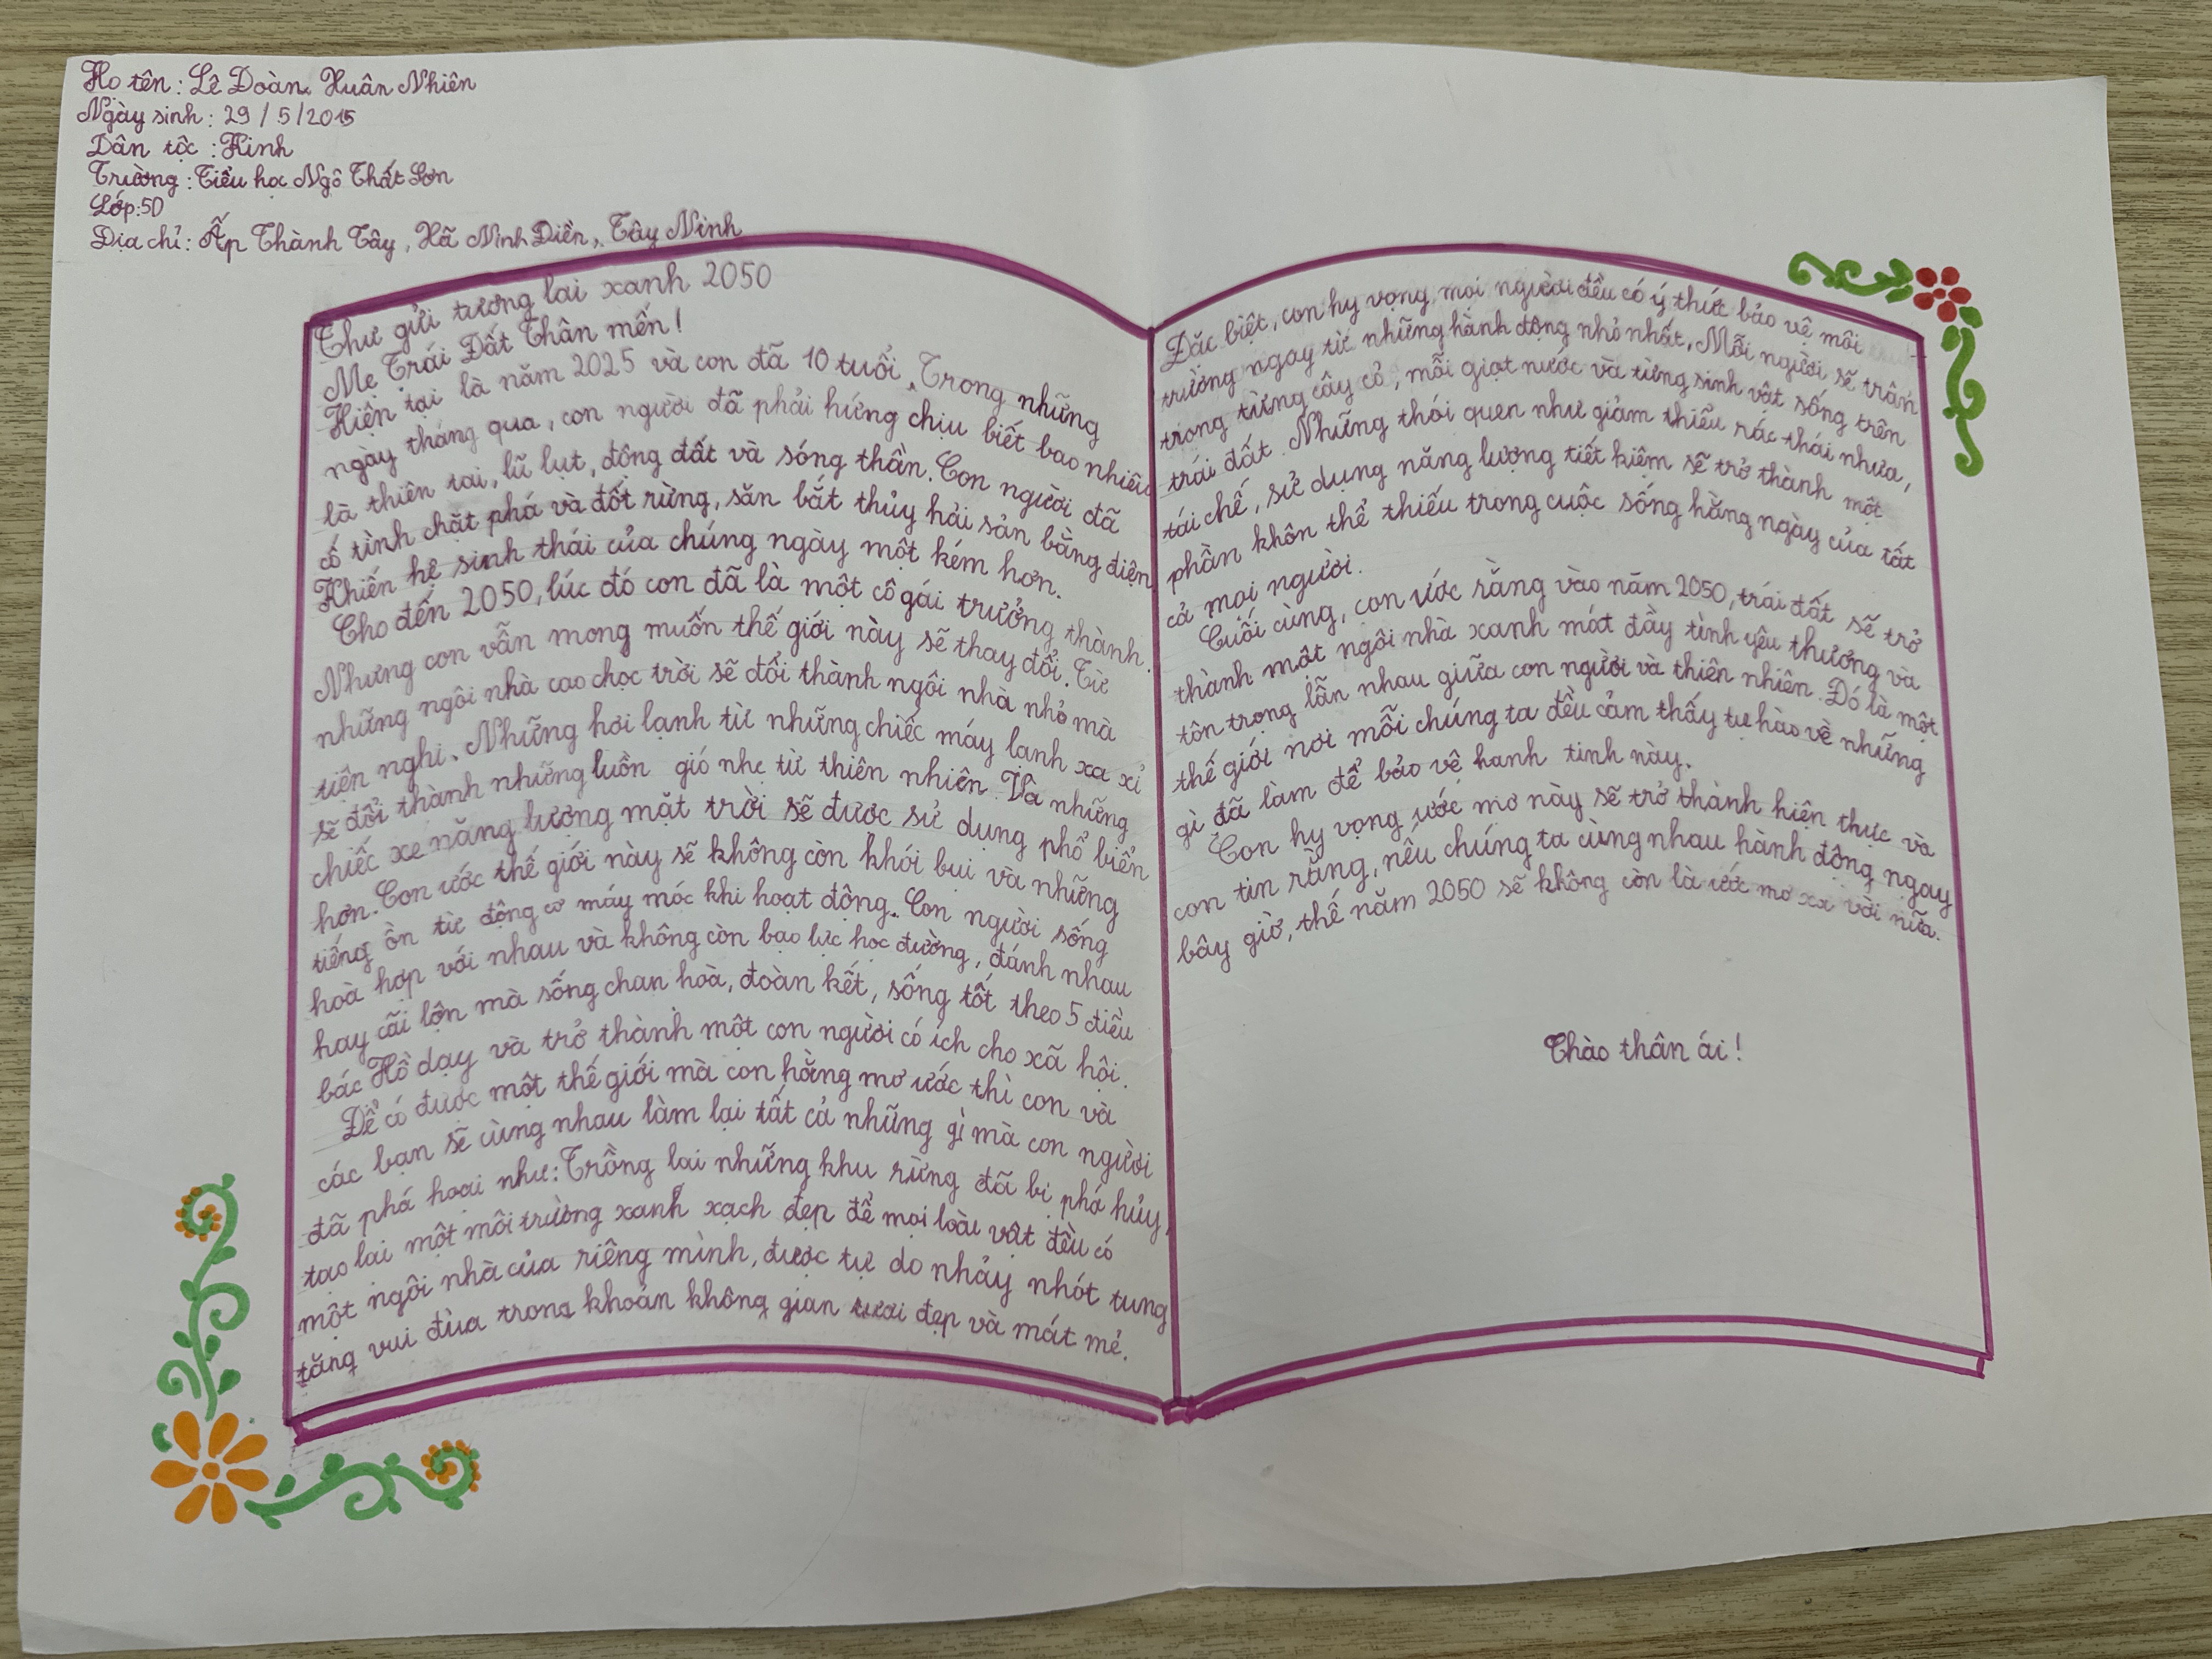 Họ tên: Lê Đoàn Xuân Nhiên
Ngày sinh: 29/5/2015
Dân tộc: Kinh
Trường: Tiểu học Ngô Thất Sơn
Lớp: 5D
Địa chỉ: Ấp Thành Tây, Xã Ninh Điền, Tây Ninh
Thư gửi tương lai xanh 2050
Mẹ Trái Đất Thân mến!
Hiện tại là năm 2025 và con đã 10 tuổi. Trong những
ngày tháng qua, con người đã phải hứng chịu biết bao nhiêu
là thiên tai, lũ lụt, động đất và sóng thần. Con người đã
cố tình chặt phá và đốt rừng, săn bắt thủy hải sản bằng điện
Khiến hệ sinh thái của chúng ngày một kém hơn.
Cho đến 2050, lúc đó con đã là một cô gái trưởng thành.
Nhưng con vẫn mong muốn thế giới này sẽ thay đổi. Từ
những ngôi nhà cao chọc trời sẽ đổi thành ngôi nhà nhỏ mà
tiện nghi. Những hơi lạnh từ những chiếc máy lạnh xa xỉ
sẽ đổi thành những luồn gió nhẹ từ thiên nhiên. Và những
chiếc xe năng lượng mặt trời sẽ được sử dụng phổ biến
hơn. Con ước thế giới này sẽ không còn khói bụi và những
tiếng ồn từ động cơ máy móc khi hoạt động. Con người sống
hoà hợp với nhau và không còn bạo lực học đường, đánh nhau
hay cãi lộn mà sống chan hoà, đoàn kết, sống tốt theo 5 điều
bác Hồ dạy và trở thành một con người có ích cho xã hội.
Để có được một thế giới mà con hằng mơ ước thì con và
các bạn sẽ cùng nhau làm lại tất cả những gì mà con người
đã phá hoại như: Trồng lại những khu rừng đã bị phá hủy,
tạo lại một môi trường xanh xạch đẹp để mọi loài vật đều có
một ngôi nhà của riêng mình, được tự do nhảy nhót tung
tăng vui đùa trong khoản không gian tươi đẹp và mát mẻ.
Đặc biệt, con hy vọng mọi người đều có ý thức bảo vệ môi
trường ngay từ những hành động nhỏ nhất. Mỗi người sẽ trân
trọng từng cây cỏ, mỗi giọt nước và từng sinh vật sống trên
trái đất. Những thói quen như giảm thiểu rác thải nhựa,
tái chế, sử dụng năng lượng tiết kiệm sẽ trở thành một
phần khôn thể thiếu trong cuộc sống hằng ngày của tất
cả mọi người.
Cuối cùng, con ước rằng vào năm 2050, trái đất sẽ trở
thành một ngôi nhà xanh mát đầy tình yêu thương và
tôn trọng lẫn nhau giữa con người và thiên nhiên. Đó là một
thế giới nơi mỗi chúng ta đều cảm thấy tự hào về những
gì đã làm để bảo vệ hanh tinh này.
Con hy vọng ước mơ này sẽ trở thành hiện thực và
con tin rằng, nếu chúng ta cùng nhau hành động ngay
bây giờ, thế năm 2050 sẽ không còn là ước mơ xa vời nữa.
Chào thân ái!